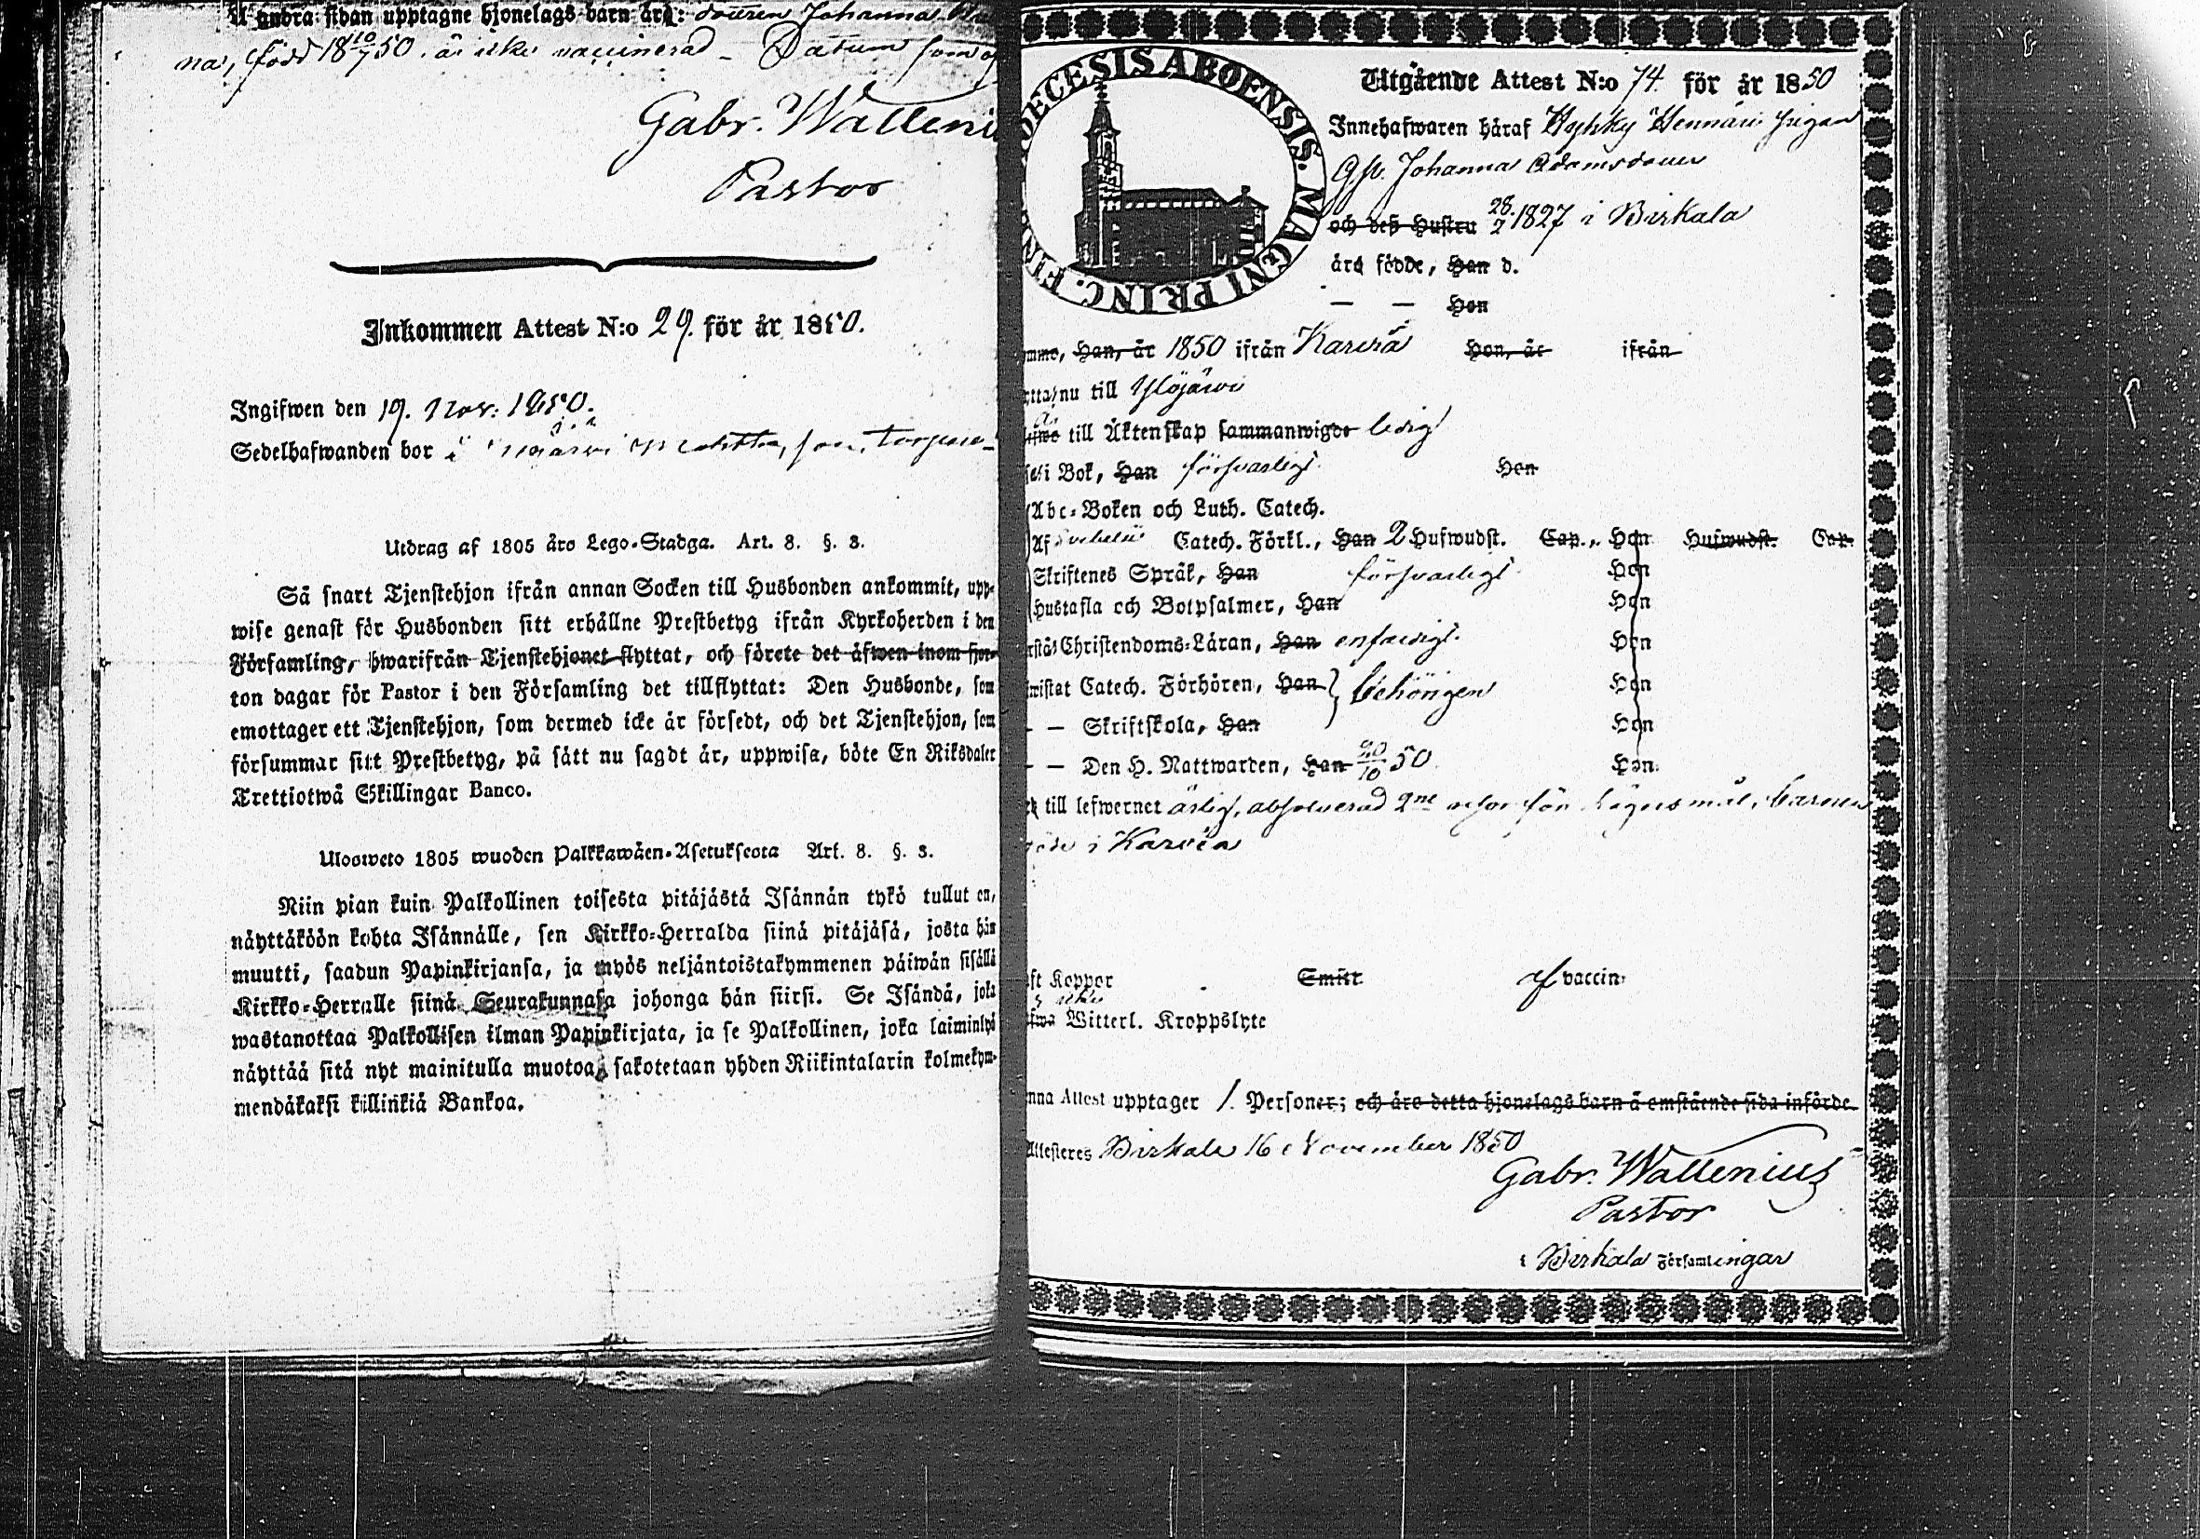 Å andra sidan upptagne hjonelags barn äro: dottren Johanna
na, född 18 10/7 50. är icke vaccinerad - Datum som
Gabr. Walleni
Pastor
Inkommen Attest N:o 29. för år 1850.
Ingifwen den 19. Nov: 1850.
Sedelhafwanden bor i
Utdrag af 1805 års Lego-Stadga. Art. 8. §. 3.
Så snart Tjenstehjon ifrån annan Socken till Husbonden ankommit, upp-
wise genast för Husbonden sitt erhållne Prestbetyg ifrån Kyrkoherden i den
Församling, hwarifrån Tjenstehjonet flyttat, och förete det äfwen inom fjor-
ton dagar för Pastor i den Församling det tillflyttat: Den Husbonde, som
emottager ett Tjenstehjon, som dermed icke är försedt, och det Tjenstehjon, som
försummar sitt Prestbetyg, på sätt nu sagdt är, uppwisa, böte En Riksdaler
Trettiotwå Skillingar Banco.
Ulosweto 1805 wuoden Palkkawäen-Asetuksesta Art. 8. §. 3.
Niin pian kuin Palkollinen toisesta pitäjästä Isännän tykö tullut on,
näyttäköön kohta Isännälle, sen Kirkko-Herralda siinä pitäjäsä, josta hän
muutti, saadun Papinkirjansa, ja myös neljäntoistakymmenen päiwän sisällä
Kirkko-Herralle siinä Seurakunnasa johonga hän siirsi. Se Isändä, joka
wastanottaa Palkollisen ilman Papinkirjata, ja se Palkollinen, joka laiminlyö
näyttää sitä nyt mainitulla muotoa, sakotetaan yhden Riikintalarin kolmekym-
mendäkaksi killinkiä Bankoa.
DECESIS ABOENSIS. MAGNI PRINC. FIN
Utgående Attest N:o 74 för år 1850
Innehafwaren häraf Hyhky Hennäri pigan
Johanna Adamsdotter
och deß Hustru 28/2 1827 i Birkala
äro födde, Han d.
— — Hon
mmo, Han, år 1850 ifrån Karvia Hon, år ifrån
nu till Ylöjärvi
till Äktenskap sammanwigde ledig
i Bok, Han försvarligt Hon
Abc-Boken och Luth. Catech.
Af Svebelii Catech. Förkl., Han 2 Hufwudst. Cap., Hon Hufwudst. Cap.
Skriftenes Språk, Han försvarligt Hon
Hustafla och Botpsalmer, Han Hon
Christendoms-Läran, Han enfaldigt Hon
wistat Catech. Förhören, Han behörigen Hon
— — Skriftskola, Han Hon
— — Den H. Nattwarden, Han 20/10 50. Hon
till lefwernet ärlig, absolverad 2ne resor för lägersmål, barnen
i Karvia
ft Koppor Smitt af vaccin:
icke
Witterl. Kroppslyte
nna Attest upptager 1. Personer; och äro detta hjonelags barn å omstående sida införde.
Attesteres Birkala 16 November 1850
Gabr. Wallenius
Pastor
i Birkala Församlingar